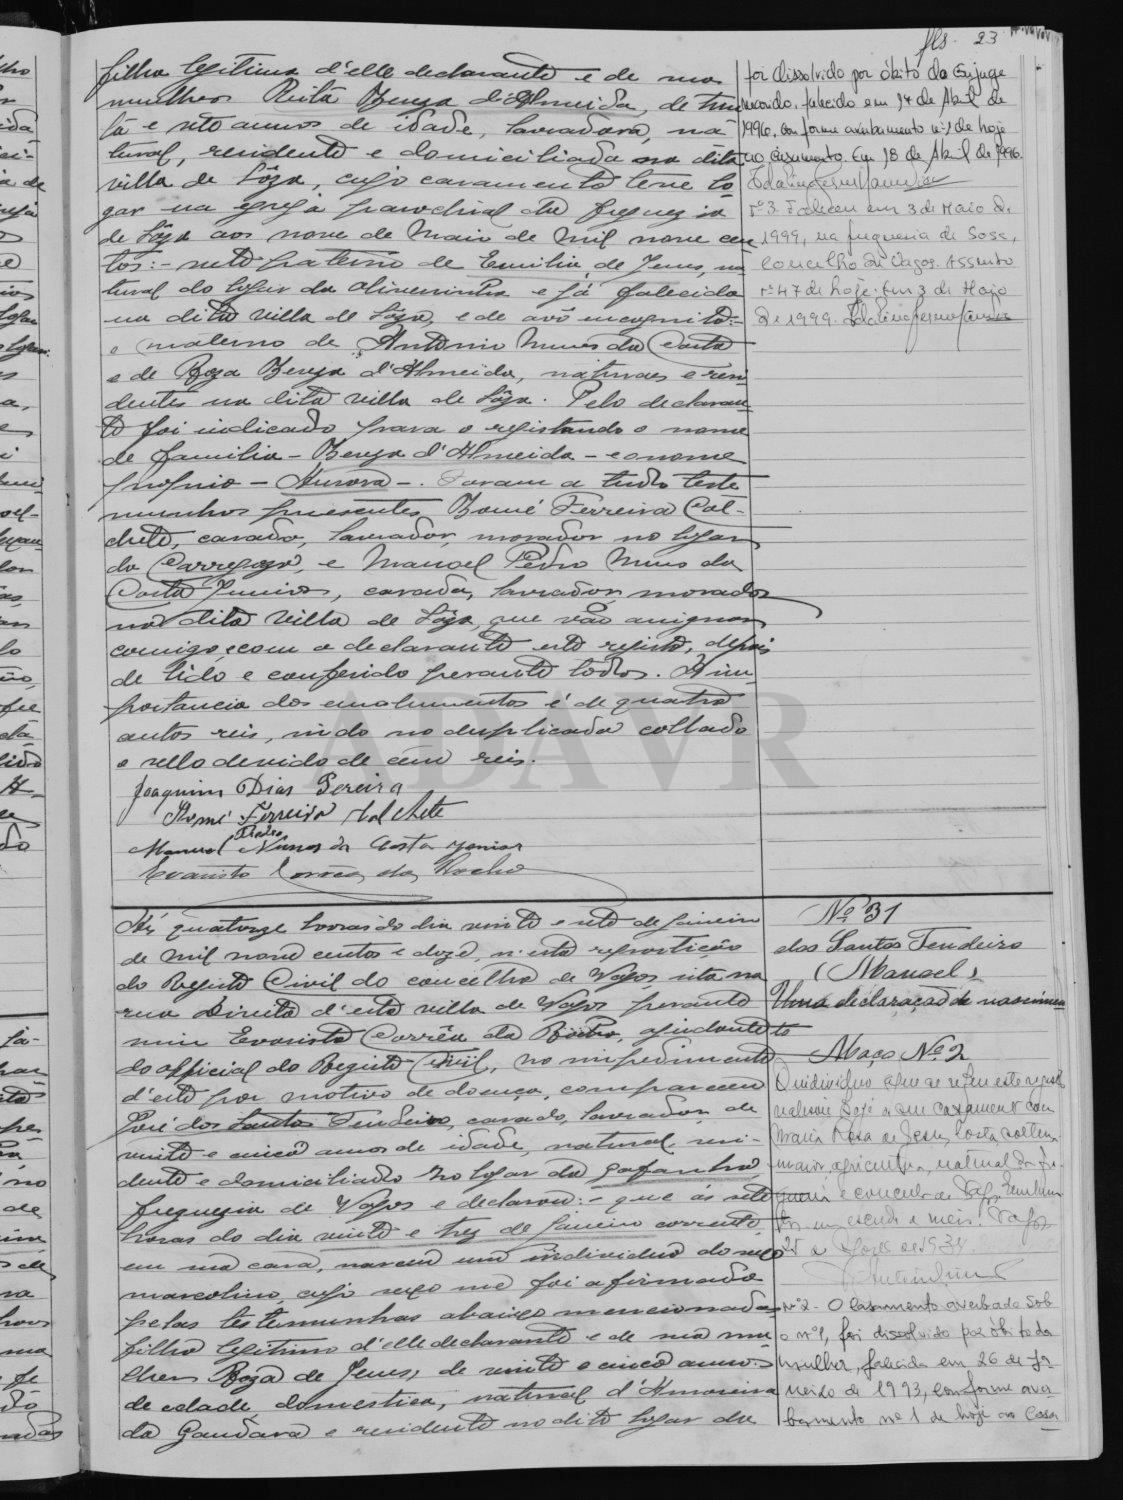 fls. 23
filha legitima d'elle declarante e de sua
mulher Rita Bereja d'Almeida, de trin
ta e sete annos de idade, lavradora, na-
tural, residente e domiciliada na dita
villa de Sôza, cujo casamento teve lo-
gar na egreja parochial da freguezia
de Sôza aos nove de Maio de mil nove cen
tos:- neto paterno de Emilia de Jesus, na
tural do logar da Oliveirinha e já falecida
na dita villa de Sôza, e de avô incognito:-
e materno de Antonio Nunes da Costa
e de Roza Bereja d'Almeida, naturaes e resi
dentes na dita villa de Sôza. Pelo declaran-
te foi indicado para o registando o nome
de familia - Bereja d'Almeida - e o nome
proprio - Aurora -. Foram a tudo teste
munhas presentes Thomé Ferreira Cal-
chete, casado, lavrador, morador no logar
da Carregosa, e Manoel Pedro Nunes da
Costa Junior, casado, lavrador, morador
na dita villa de Sôza, que vão assignar
comigo e com o declarante este registo, depois
de lido e conferido perante todos. A im-
portancia dos emolumentos é de quatro
centos reis, indo no duplicado collado
o sello devido de cem reis.
Joaquim Dias Pereira
Thomé Ferreira Calchete
Manuel Pedro Nunes da Costa Junior
Evaristo Corrêa da Rocha
foi dissolvido por óbito do Conjuge
marido, falecido em 14 de Abril de
1996, conforme averbamento nº1 de hoje
ao casamento. Em 18 de Abril de 1996.
nº3 Faleceu em 3 de Maio de
1999, na freguesia de Sosa,
concelho de Vagos. Assento
nº 47 de hoje. Em 3 de Maio
de 1999.
ADAVR
Ás quatorze horas do dia vinte e sete de Janeiro
de mil nove centos e doze, n'esta repartição
do Registo Civil do concelho de Vagos, sita na
rua Direita d'esta villa de Vagos perante
mim Evaristo Corrêa da Rocha, ajudante
do official do Registo Civil, no impedimento
d'este por motivo de doença, compareceu
José dos Santos Tendeiro, casado, lavrador, de
vinte e cinco annos de idade, natural, resi-
dente e domiciliado no logar da Gafanha,
freguezia de Vagos e declarou:- que ás sete
horas do dia vinte e trez de Janeiro corrente,
em sua casa, nasceu um individuo do sexo
masculino, cujo sexo me foi afirmado
pelas testemunhas abaixo mencionadas
filho legitimo d'elle declarante e de sua mu
lher Roza de Jesus, de vinte e cinco annos
de edade domestica, natural d'Amoreira
da Gandara e residente no dito logar da
Nº 31
dos Santos Tendeiro
(Manoel)
Uma declaração de nascimen
to
Maço Nº 2
O individuo a que se refere este registo
realisou hoje o seu casamento com
Maria Rosa de Jesus Costa, solteira,
maior, agricultora, natural da fre-
guesia e concelho de Vagos.
Nº2 - O Casamento averbado sob
o nº1, foi dissolvido por óbito da
mulher, falecida em 26 de Ja
neiro de 1993, conforme aver
bamento nº 1 de hoje ao Casa